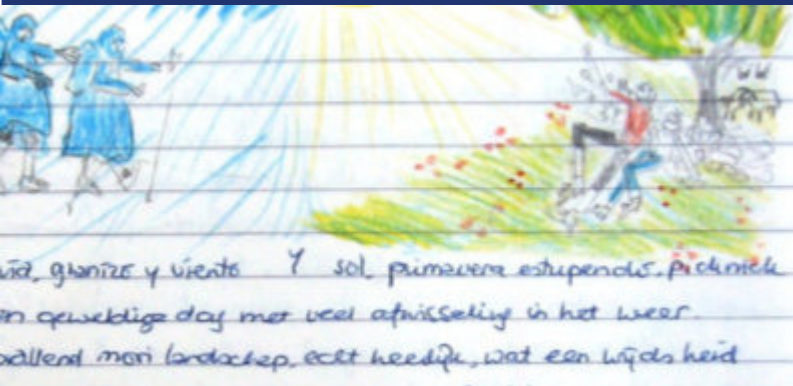 granizo y viento Y sol, primavera estupendo. picknick
geweldige dag met veel afwisseling in het weer.
mooi landschap, echt heerlijk, wat een wijds heid